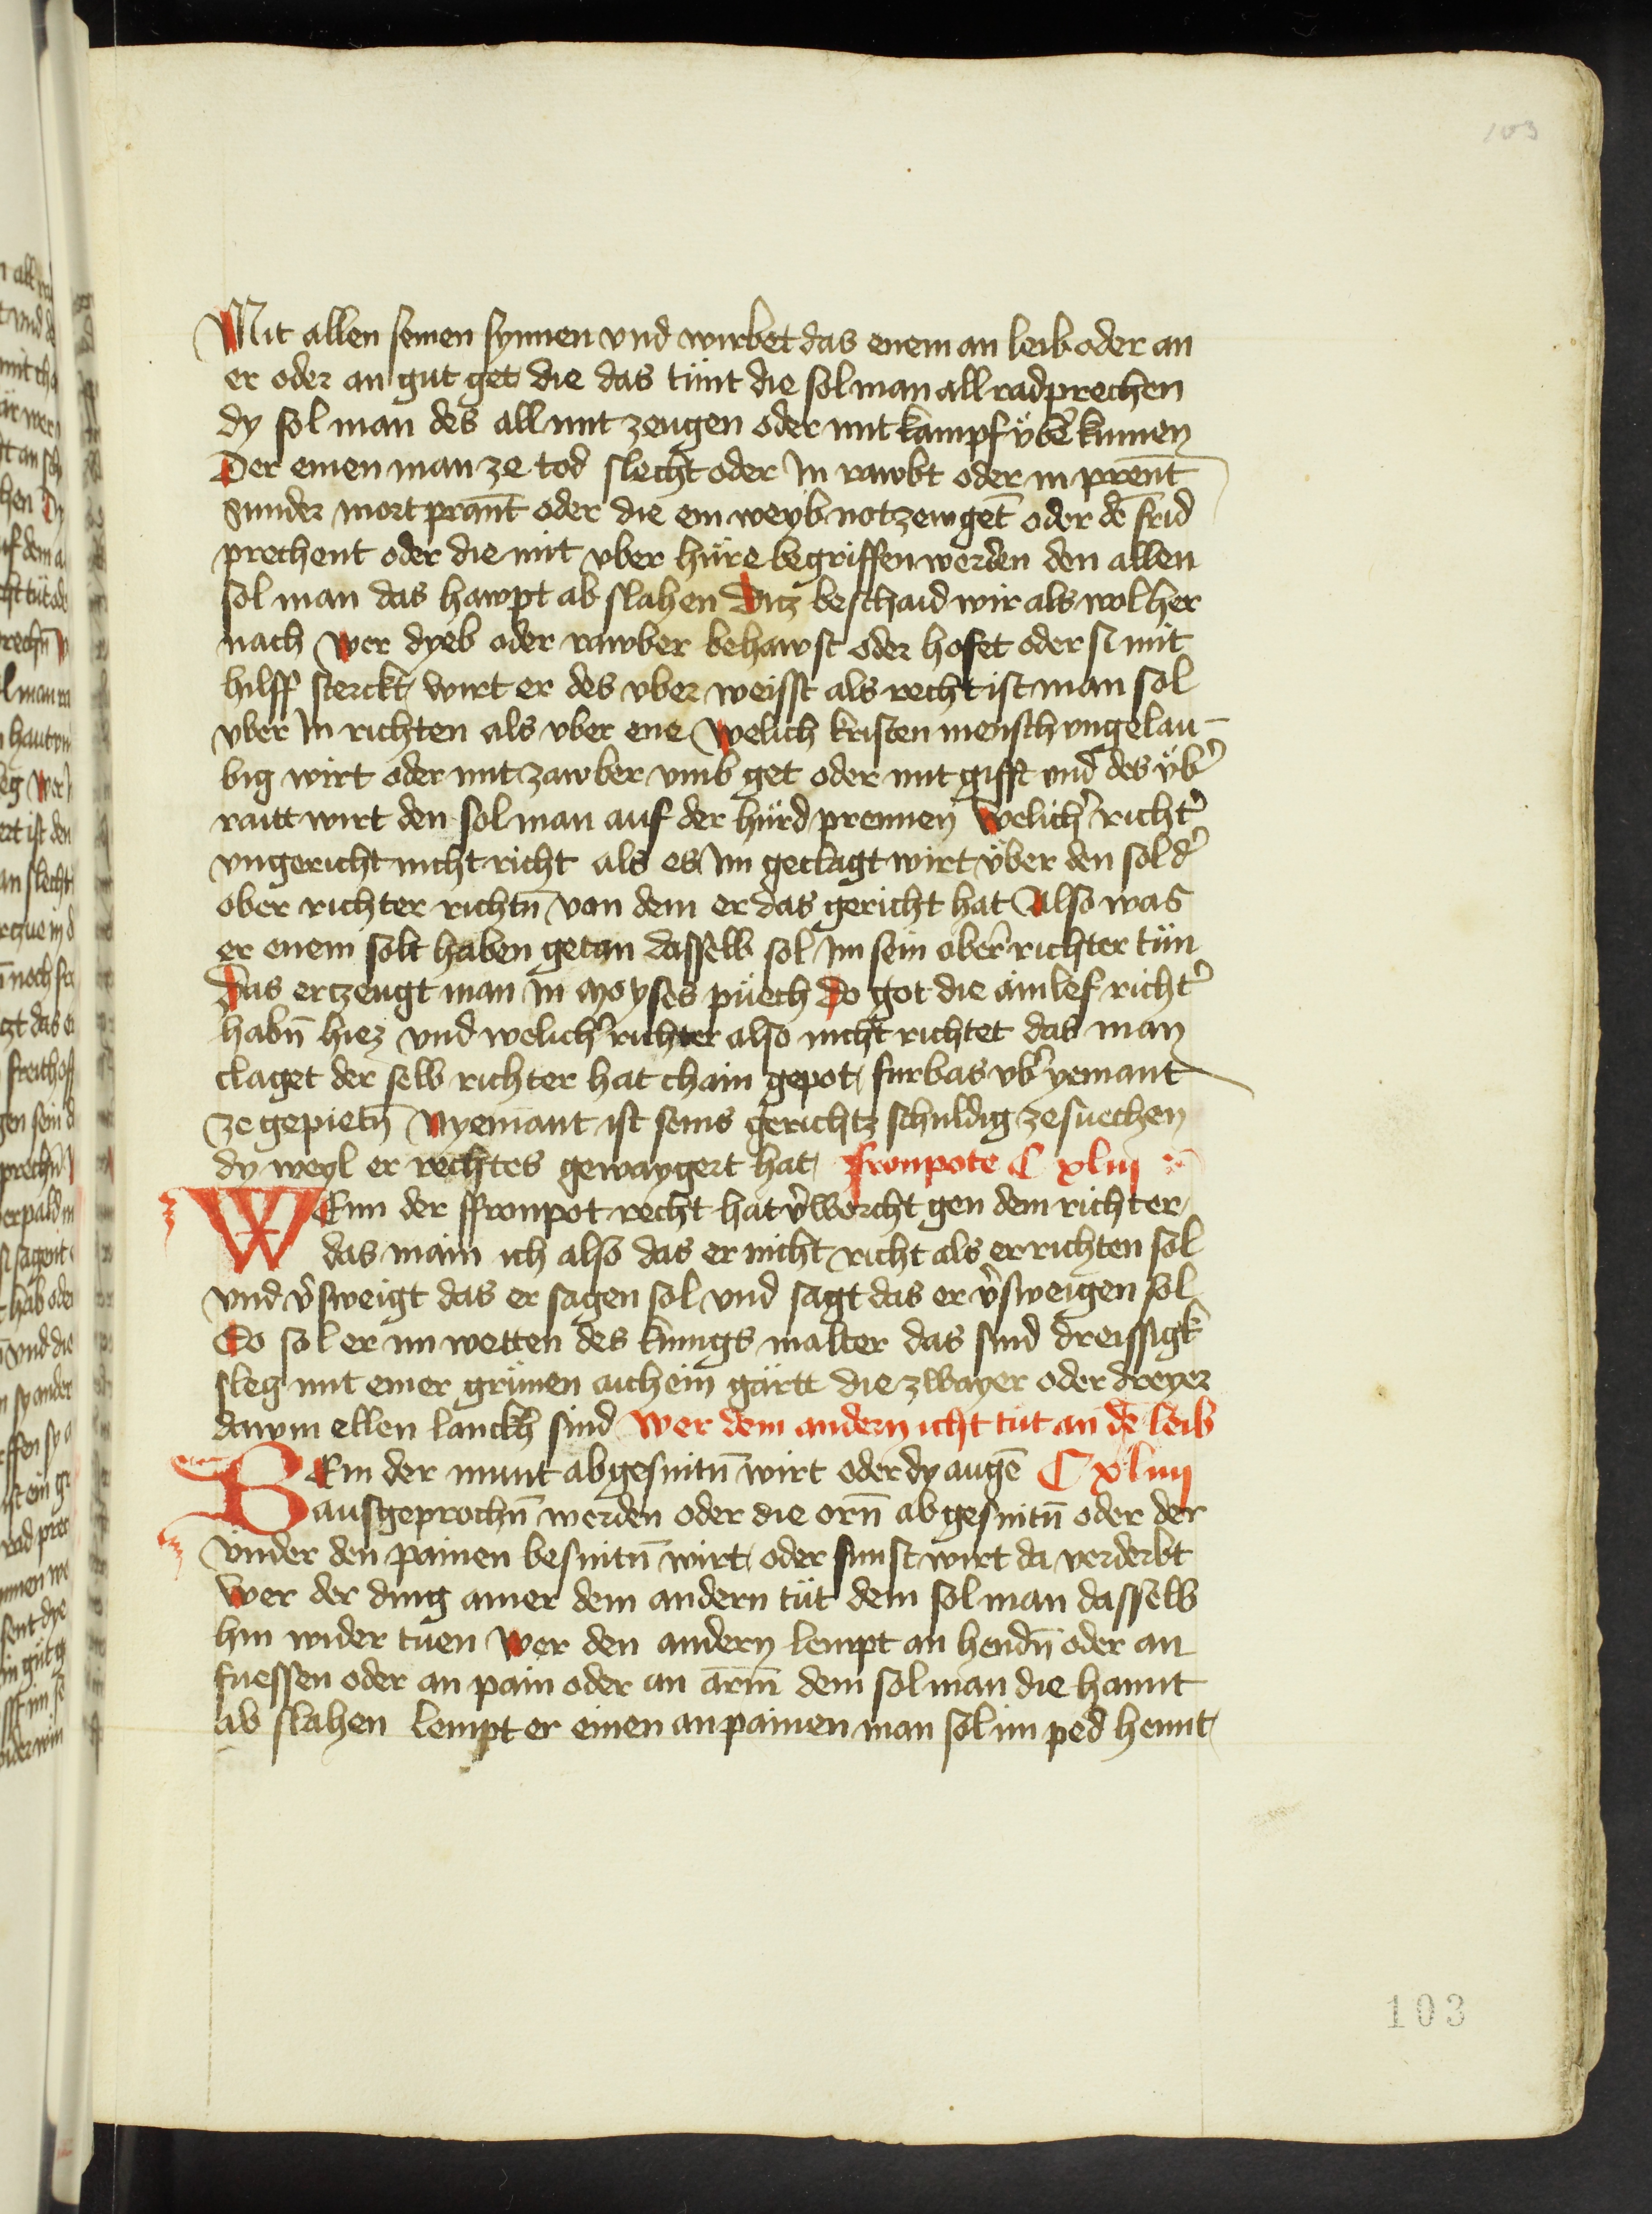 103
Mit allen seinen synnen vnd wirbet das enem an leib oder an
er oder an gut get die das tünt die sol man all radprechen
dy sol man des all mit zeugen oder mit kampf vber̄ kumen
Der einen man ze tod slecht oder In rawbt oder in prent̄
sunder mort prant̄ oder die ein weyb notzewget̄ oder dē frid
prechent oder die mit vber hüre begriffen werden den allen
sol man das hawpt ab slahen Ditz beschaid wir als wol her
nach Wer dyeb oder rawber behawst oder hofet oder si mit
hilff sterckt, wirt er des vber weisst als recht ist man sol
vber In richten als vber ene Welich kristen mensch vngelau-
big wirt oder mit zawber vmb get oder mit gifft vnd des vb̓
raitt wirt den sol man auf der hürd prennen Welich̓ richt̓
vngericht nicht richt als es Im geclagt wirt vber den sol d̓
ober richter richtn̄ von dem er das gericht hat Also was
er enem solt haben getan dasselb sol Im sein ober̓ richter tün
Das erczeugt man In Moyses püech do got die ainlef richt̓
habn̄ hiez vnd welich̓ richter also nicht richtet das man
claget der selb richter hat chain gepot, furbas vb̓ yemant
ze gepietn̄ Nyemant ist seins gerichtz schuldig ze suechen
dy weyl er rechtes gewaygert hat, fronpote C xliij
WEnn der ffronpot recht hat v̓worcht gen dem richter,
das main ich also das er nicht richt als er richten sol
vnd v̓sweigt das er sagen sol vnd sagt das er v̓sweigen sol
Do sol er im wetten des kunigs malter das sind dreissigk
sleg mit einer grünen aichein gärtt die zwayer oder dreyer
dawm ellen lanckh sind Wer dem andern icht tüt an dē leib
Em der munt abgesnitn̄ wirt oder dy augē C xliiij
ausgeprochn̄ werden oder die orn̄ abgesnitn̄ oder der
vnder den painen besnitn̄ wirt, oder sunst wirt da verderbt
Wer der ding ainer dem andern tüt dem sol man dasselb
hin wider tuen Wer den andern lempt an hendn̄ oder an
fuessen oder an pain oder an arm̄ dem sol man die hannt
ab slahen lempt er einen an painen man sol im ped hennt,
103